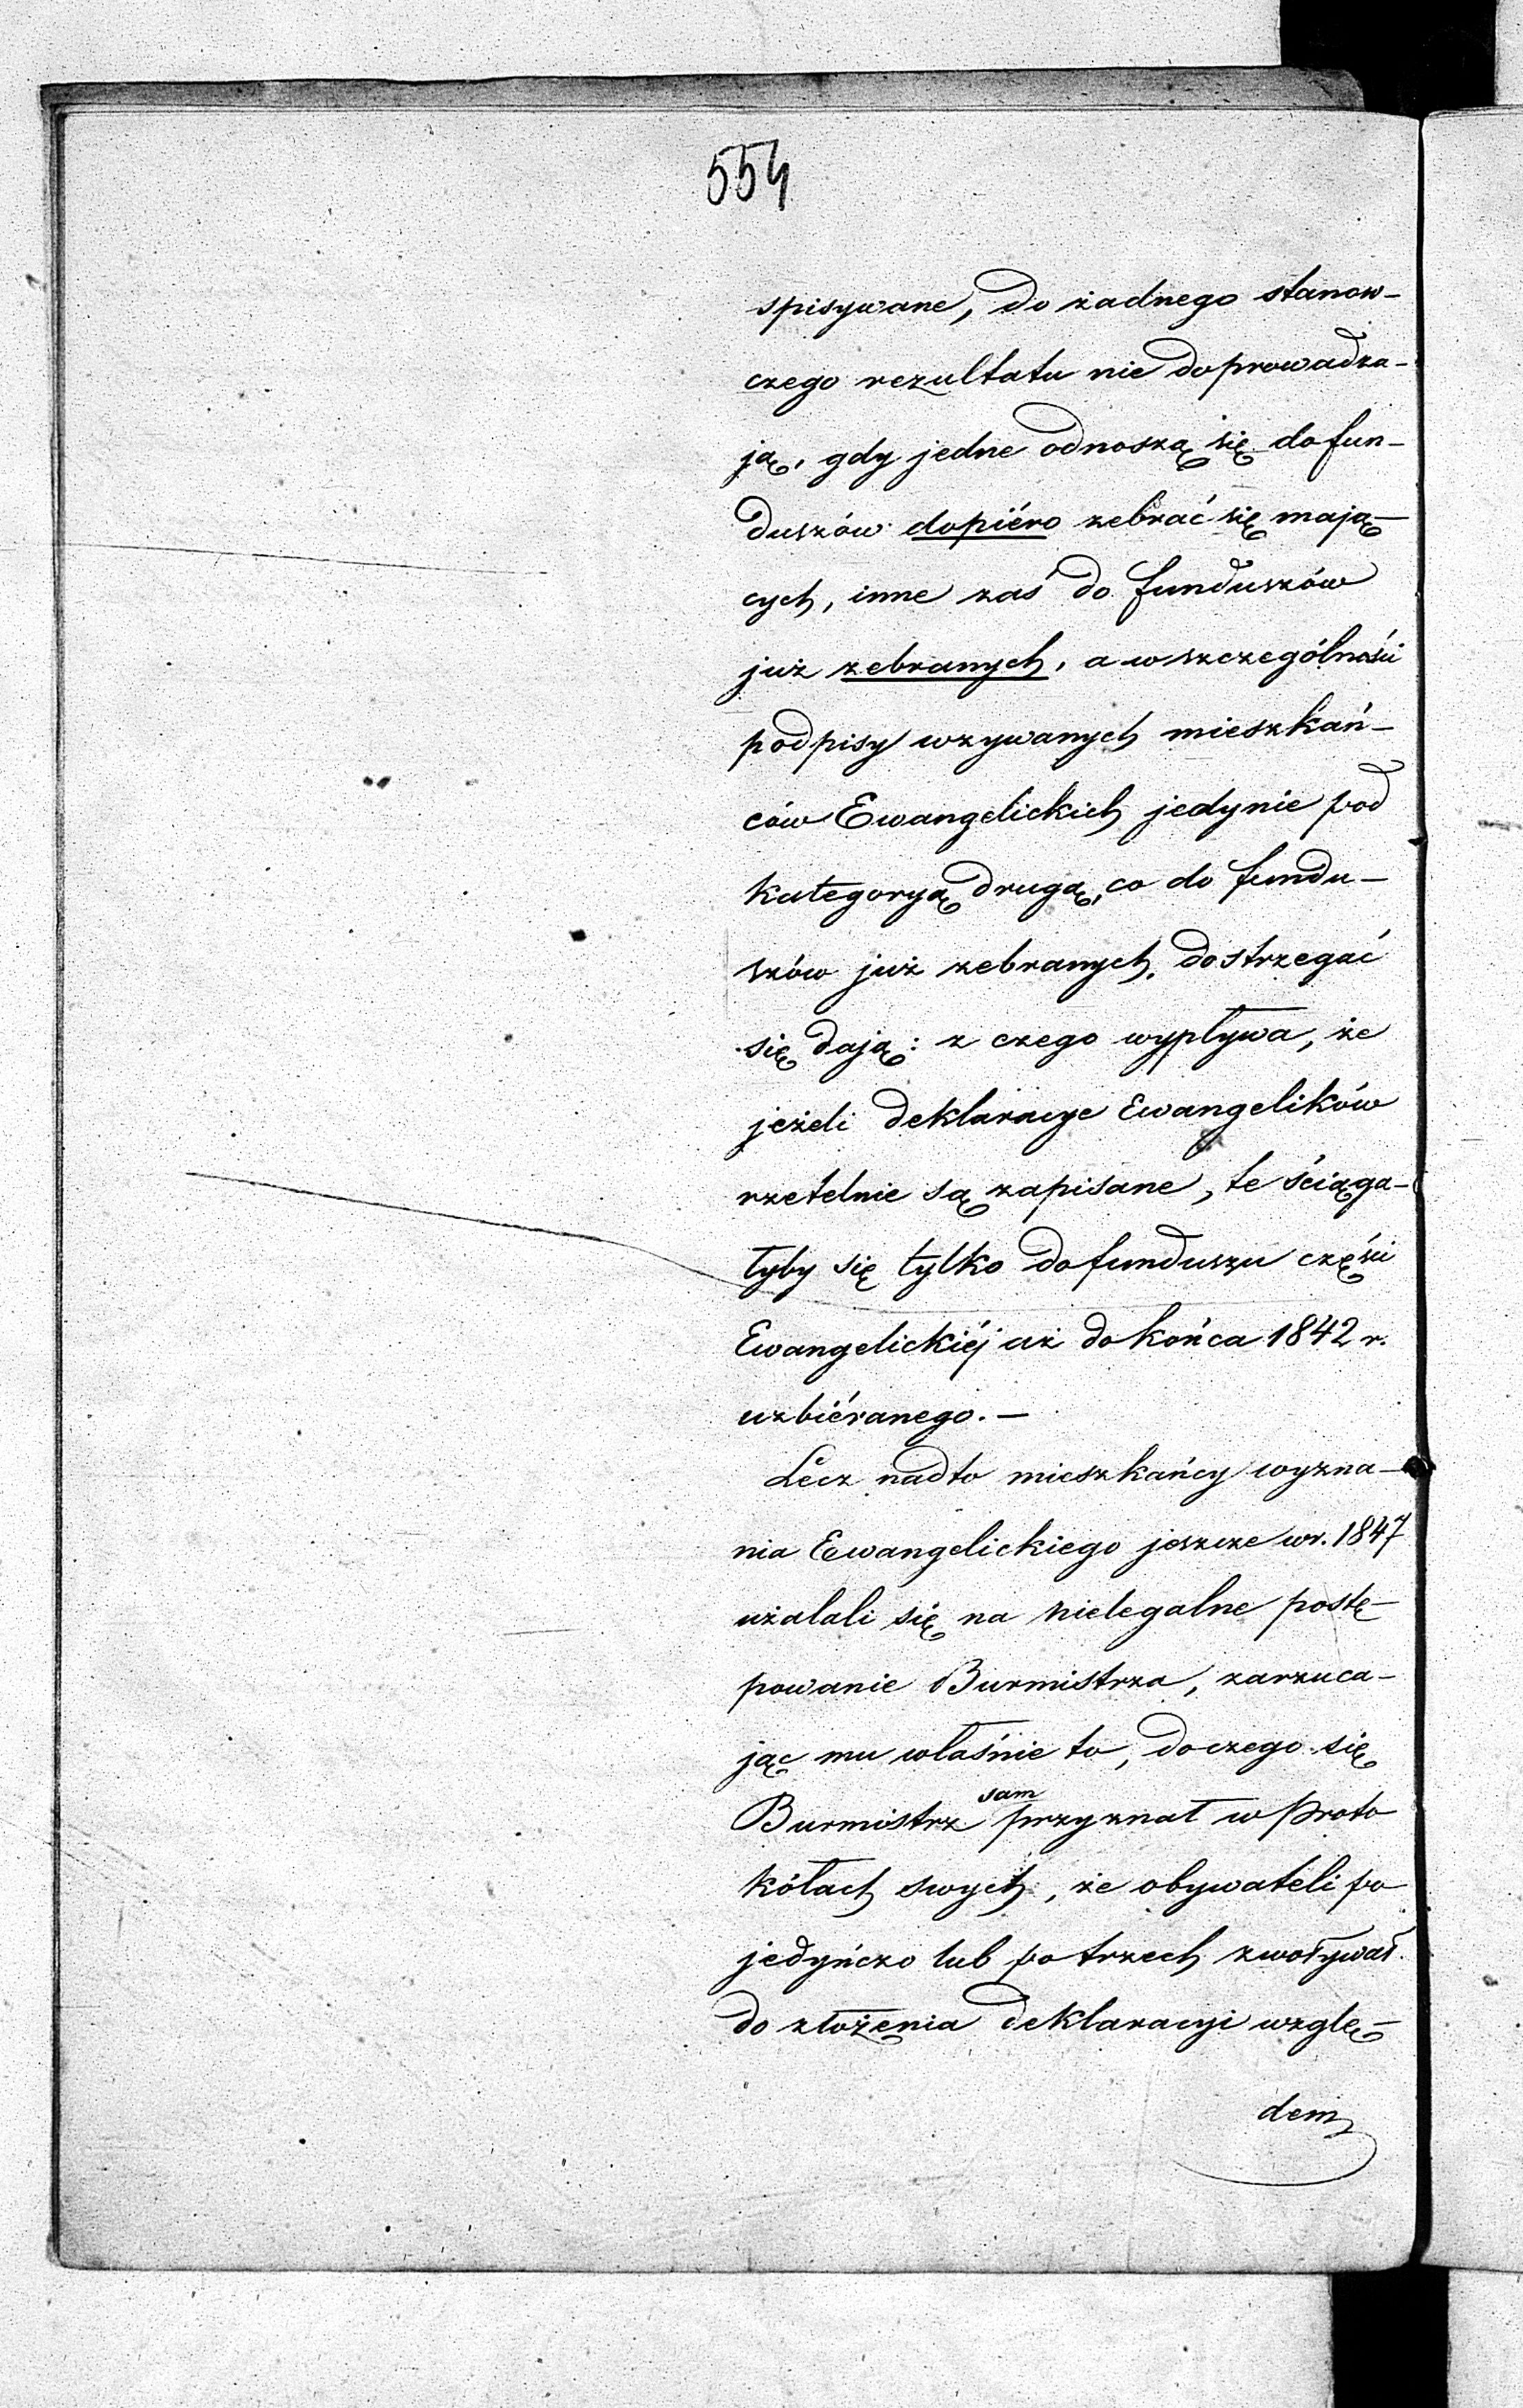 554
spisywane, do żadnego stanow-
czego rezultatu nie doprowadza-
ją, gdy jedne odnoszą się do fun-
duszów dopiéro zebrać się mają-
cych, inne zaś do funduszów
już zebranych, a w szczególności
podpisy wzywanych mieszkań-
ców Ewangelickich jedynie pod
kategoryą drugą, co do fundu-
szów już zebranych, dostrzegać
się dają: z czego wypływa, że
jeżeli deklaracye Ewangelików
rzetelnie są zapisane, te ściąga-
łyby się tylko do funduszu części
Ewangelickiéj aż do końca 1842 r.
uzbiéranego. —
Lecz nadto mieszkańcy wyzna-
nia Ewangelickiego jeszcze w r. 1847
użalali się na nielegalne postę-
powanie Burmistrza, zarzuca-
jąc mu właśnie to, do czego się
Burmistrz sam przyznał w proto
kółach swych, że obywateli po
jedyńczo lub po trzech zwoływał
do złożenia deklaracyi wzglę-
dem